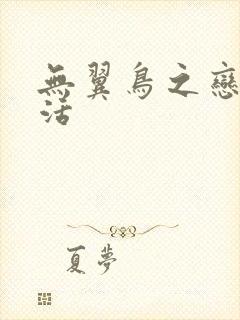 無翼鳥之戀
活
夏夢